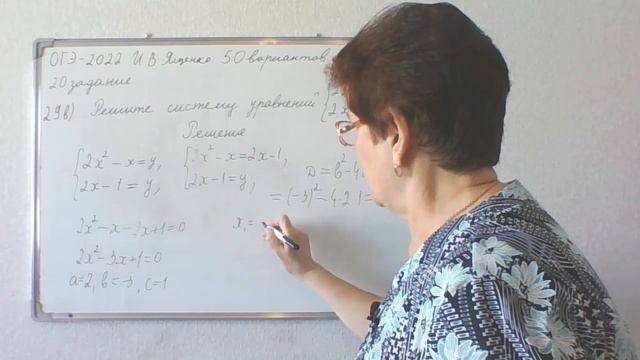 ОГЭ-2022 И В Ященко 50 вариантов
20 задание
29в) Решите систему уравнений {2x
Решение
{2x²-x=y, {2x²-x=2x-1, D=b²-4
2x-1=y, 2x-1=y; =(-3)²-4·2·1=
2x²-x-2x+1=0 x₁=
2x²-3x+1=0
a=2, b=-3, c=1